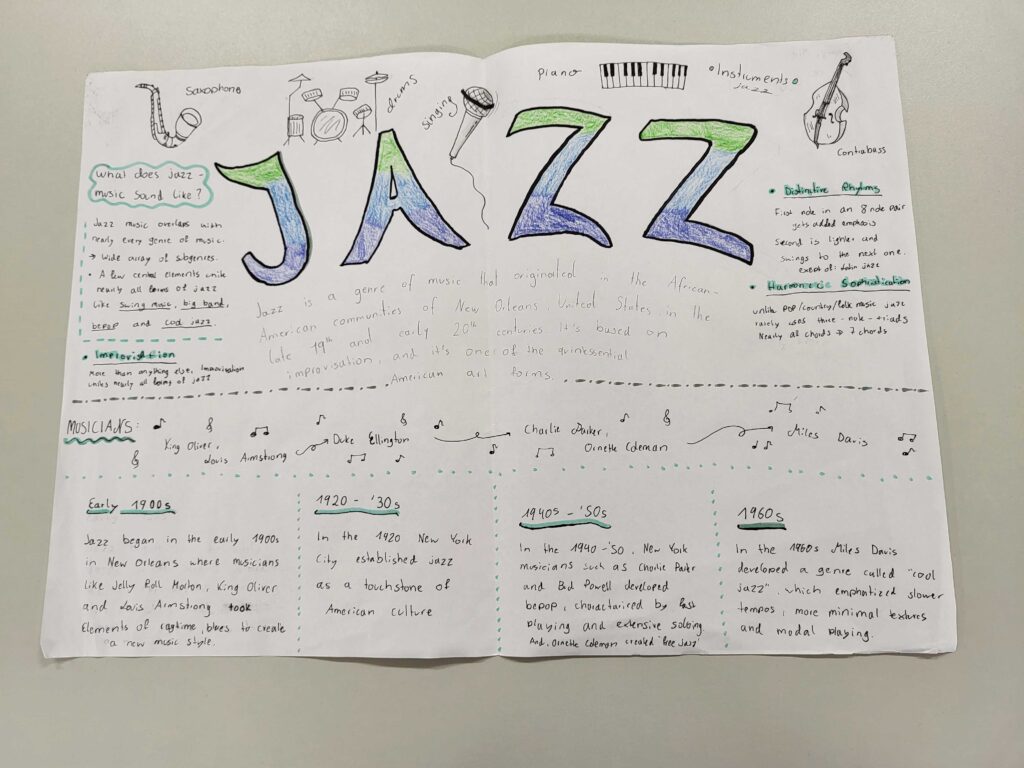 Saxophone
drums
singing
piano
•Instruments•
jazz
Contrabass
JAZZ
What does jazz -
music sound like?
Jazz music overlaps with
nearly every genre of music.
→ Wide array of subgenres.
• A few central elements unite
nearly all forms of jazz
like swing music, big band,
bepop and cool jazz.
• Improvistion
More than anything else, Improvisation
unites nearly all forms of jazz
Jazz is a genre of music that originalted in the African-
American communities of New Orleans, United States, in the
late 19th and early 20th centuries. It's based on
improvisation, and it's one of the quintessential
American art forms.
• Distinctive Rhytms
First note in an 8 note pair
gets added emphasis
Second is lighter and
swings to the next one.
exept of: latin jazz
• Harmonic Sophistication
unlike pop/country/folk music jazz
rarely uses three - note - triads
Nearly all chords → 7 chords
MUSICIANS:
King Oliver,
Louis Armstrong
Duke Ellington
Charlie Parker,
Ornette Coleman
Miles Davis
Early 1900s
Jazz began in the early 1900s
in New Orleans where musicians
like Jelly Roll Morton, King Oliver
and Louis Armstrong took
Elements of ragtime, blues to create
a new music style.
1920 - '30s
In the 1920 New York
City established jazz
as a touchstone of
American culture
1940s - '50s
In the 1940 - '50, New York
musicians such as Charlie Parker
and Bud Powell developed
bepop, charactarired by fast
playing and extensive soloing.
And, Ornette Coleman created "free jazz"
1960s
In the 1960s Miles Davis
developed a genre called "cool
jazz", which emphatized slower
tempos, more minimal textures
and modal playing.